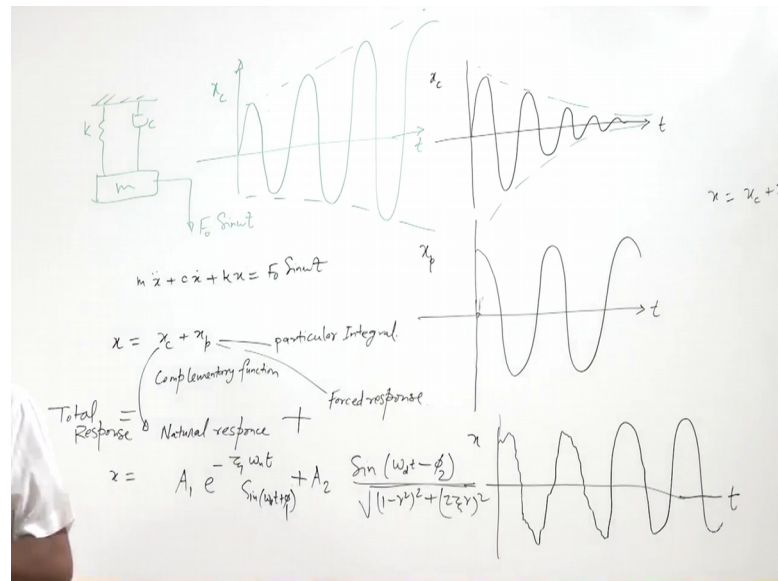 k
c
m
F₀ Sinωt
x_c
t
x_c
t
x = x_c +
mẍ + cẋ + kx = F₀ Sinωt
x_p
t
x = x_c + x_p particular Integral.
Complementary function
Forced response
Total Response = Natural responce +
x = A₁ e^(-ξωₙt) Sin(ω_d t+ϕ₁) + A₂ Sin(ω_d t-ϕ₂) / √((1-r²)²+(2ξr)²)
x
t